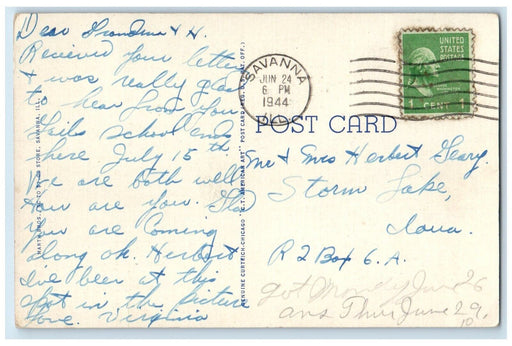 Dear Grandma & H.
Recieved your letter
& was really glad
to hear from you.
Gails school ends
here July 15th.
We are both well
How are you. Glad
you are coming
along ok. Herbert
I've been at this
spot in the picture
Love. Virginia
SAVANNA
JUN 24
6 PM
1944
ILL.
UNITED
STATES
POSTAGE
1 CENT 1
POST CARD
Mr & Mrs Herbert Geary.
Storm Lake,
Iowa.
R2 Box 6.A.
got Money June 26
ans Thur June 29,
GENUINE CURTEICH-CHICAGO "C.T. AMERICAN ART" POST CARD (REG. U.S. PAT. OFF.)
STORE, SAVANNA, ILL.